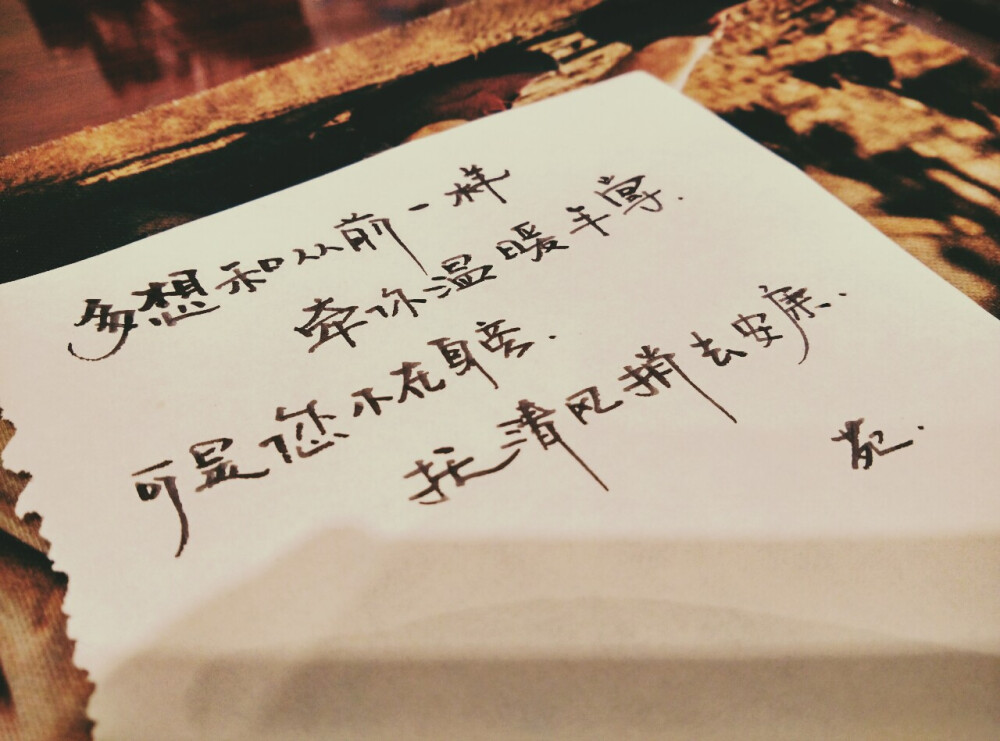 多想和从前一样
牵你温暖手掌.
可是您不在身旁.
托清风捎去安康.
苑.